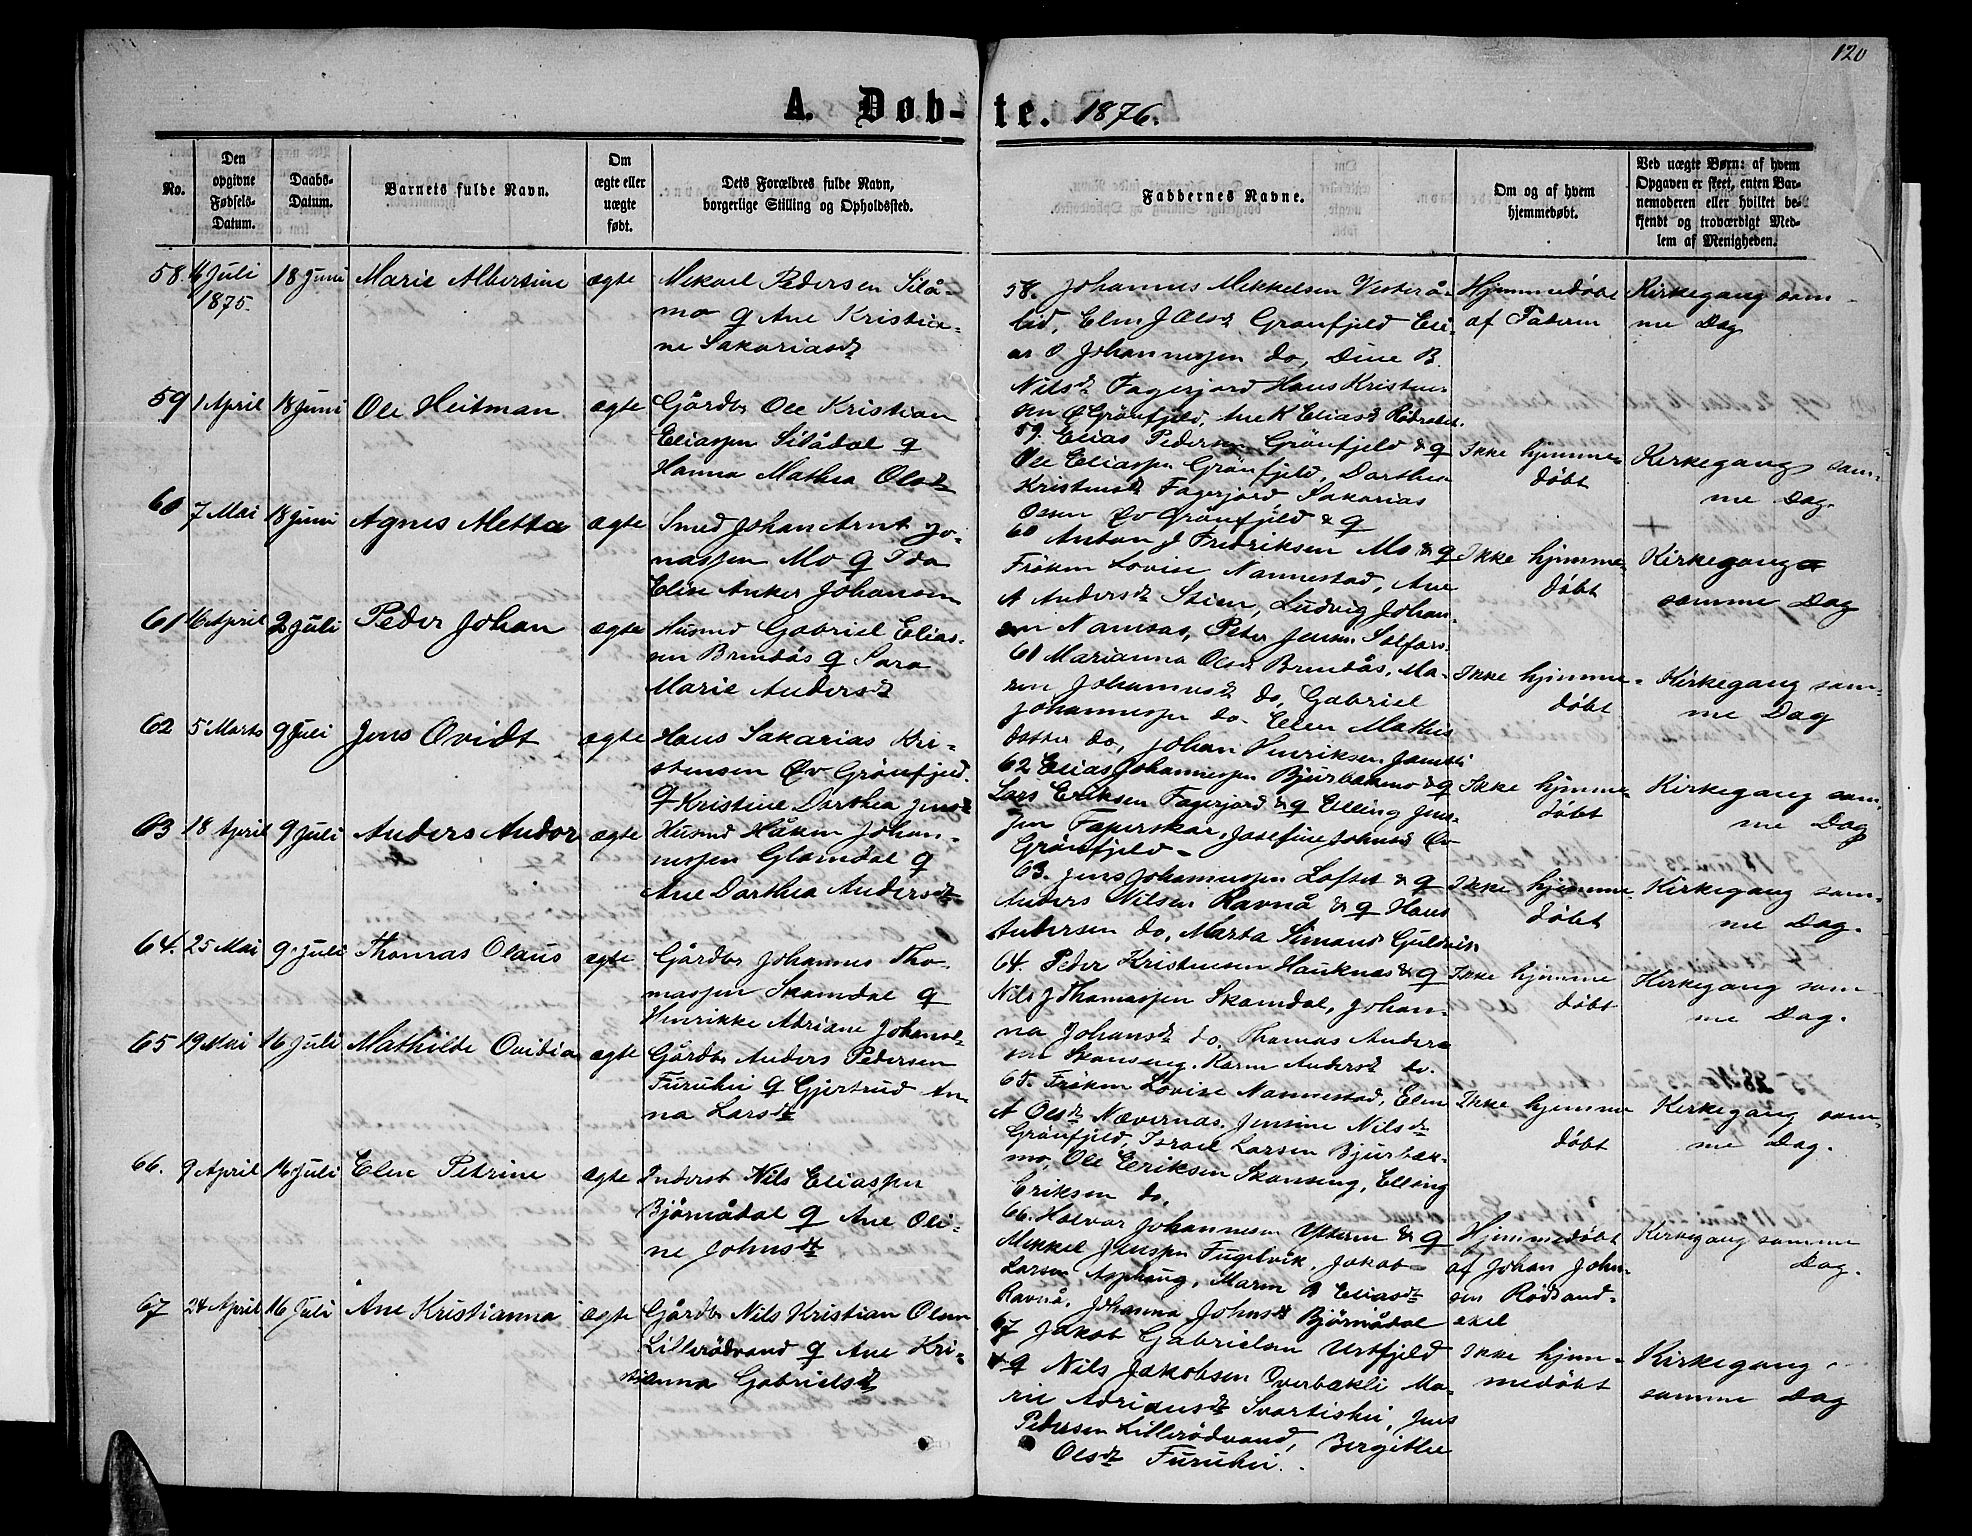 120
A. Døb-
te. 1876.
No.
Den
opgivne
Fødsels-
Datum.
Daabs-
Datum.
Barnets fulde Navn.
Om
ægte eller
uægte
født.
Dets Forældres fulde Navn,
borgerlige Stilling og Opholdssted.
Faddernes Navne.
Om og af hvem
hjemmedøbt.
Ved uægte Børn: af hvem
Opgaven er skeet, enten Bar-
nemoderen eller hvilket be-
kjendt og troværdigt Med-
lem af Menigheden.
58. Juli
1875.
18 Juni
Marie Albertine
ægte
Mikael Pedersen Silå-
mo q Ane Kristia-
ne Sakariasdt
58. Johannes Mikkelsen Vesterå-
lid, Elen J Olsdt Grønfjeld Eli-
as O Johannessen do, Dine B.
Nilsdt Fagerjord Hans Kristen-
sen Ø Grønfjeld, Ane K Eliasdt
Hjemmedøbt
af Faderen
Kirkegang sam-
me Dag
59
1 April
18 Juni
Ole Heitman
ægte
Gårdbr Ole Kristian
Eliassen Silådal q
Hanna Mathea Olsdt
59. Elias Pedersen Grønfjeld & q
Ole Eliassen Grønfjeld, Darthea
Kristensdt Fagerjord Sakarias
Olsen Øv Grønfjeld & q
Ikke hjemme-
døbt
Kirkegang sam-
me Dag.
60
7 Mai
18 Juni
Agnes Metta
ægte
Smed Johan Arnt Jo-
nassen Mo q Ida
Eline Anker Johansen
60 Anton J Fredriksen Mo & q
Frøken Lovise Nannestad, Ane
A Andersdt Stien, Ludvig Johan-
sen Namsås, Peter Jensen
Ikke hjemme-
døbt
Kirkegang
samme Dag
61
16 April
2 Juli
Peder Johan
ægte
Husmd Gabriel Elias-
sen Brendås q Sara
Marie Andersdt
61 Marianna Olsdt Brendås, Ma-
ren Johannesdt do, Gabriel
Johannessen do. Elen Mathis
datter do, Johan Henriksen
Ikke hjemme-
døbt
Kirkegang sam-
me Dag
62
5 Marts
9 Juli
Jens Ovidt
ægte
Hans Sakarias Kri-
stensen Øv Grønfjeld.
q Kristine Darthea Jensdt
62 Elias Johannessen Bjurbækmo & q
Lars Eriksen Fagerjord & q Elling Jens-
sen Faperskar, Josefine Johnsd Øv
Grønfjeld
Ikke hjemme-
døbt
Kirkegang sam-
me Dag
63
18 April
9 Juli
Anders Andor
ægte
Husmd Håken Johan-
nessen Glamdal q
Ane Darthea Andersdt
63. Jens Johannessen Loftet & q
Anders Nilsen Ravnå & q Hans
Andersen do, Marta Simonsd Guldvik
Ikke hjemme
døbt
Kirkegang sam-
me Dag.
64.
25 Mai
9. Juli
Thomas Olaus
ægte
Gårdbr Johannes Tho-
massen Skamdal q
Henrikke Adriane Johansdt
64. Peder Kristensen Hauknes & q
Nils J Thomassen Skamdal, Johan-
na Johansdt do, Thomas Anders
sen Skonseng. Karen Andersdt do.
Ikke hjemme
døbt
Kirkegang sam-
me Dag.
65
19 Mai
16 Juli
Mathilde Ovidia
ægte
Gårdbr Anders Pedersen
Furuhei q Gjertrud An-
na Larsdt
65. Frøken Lovise Nannestad, Elen
A Olsdt Nævernes, Jensine Nilsdt
Grønfjeld, Israel Larsen Bjurbæk-
mo, Ole Eeriksen Skonseng, Elling
Eriksen do.
Ikke hjemme
døbt
Kirkegang sam-
me Dag.
66.
9 April
16 Juli
Elen Petrine
ægte
Inderst Nils Eliassen
Bjørnådal q Ane Oli-
ne Johnsdt
66. Halvor Johannesen Ytteren & q
Mikkel Jenssen Fugelvik, Jakob
Larsen Asphaug, Maren B Eliasdt
Ravnå, Johanna Johnsdt Bjørnådal
Hjemmedøbt
af Johan John-
sen Rødvand-
Kirkegang samme
Dag.
67
24 April
16 Juli
Ane Kristianna
ægte
Gårdbr Nils Kristian Olsen
Lillerødvand q Ane Kri-
stianna Gabrielsdt
67 Jakob Gabrielsen Urtfjeld
& q Nils Jakobsen Overbækli Ma-
rie Adriansdt Svartishei, Jens
Pedersen Lillerødvand, Bergithe
Olsdt Furuhei.
Ikke hjem-
medøbt
Kirkegang
samme Dag